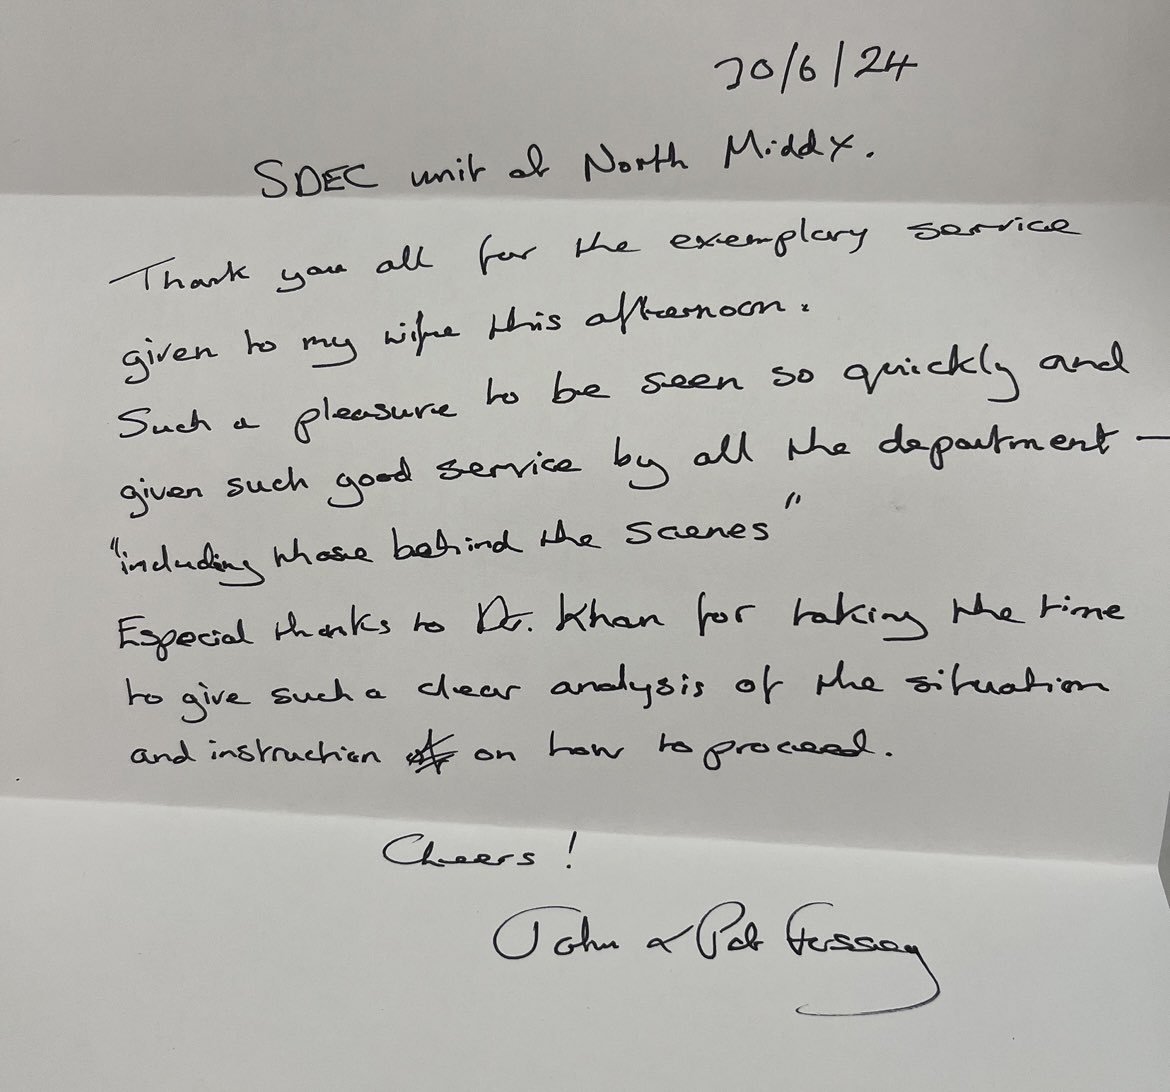 30/6/24
SDEC unit at North Middx.
Thank you all for the exemplary service
given to my wife this afternoon.
Such a pleasure to be seen so quickly and
given such good service by all the department —
"including those behind the scenes"
Especial thanks to Dr. Khan for taking the time
to give such a clear analysis of the situation
and instruction on how to proceed.
Cheers!
John & Pat